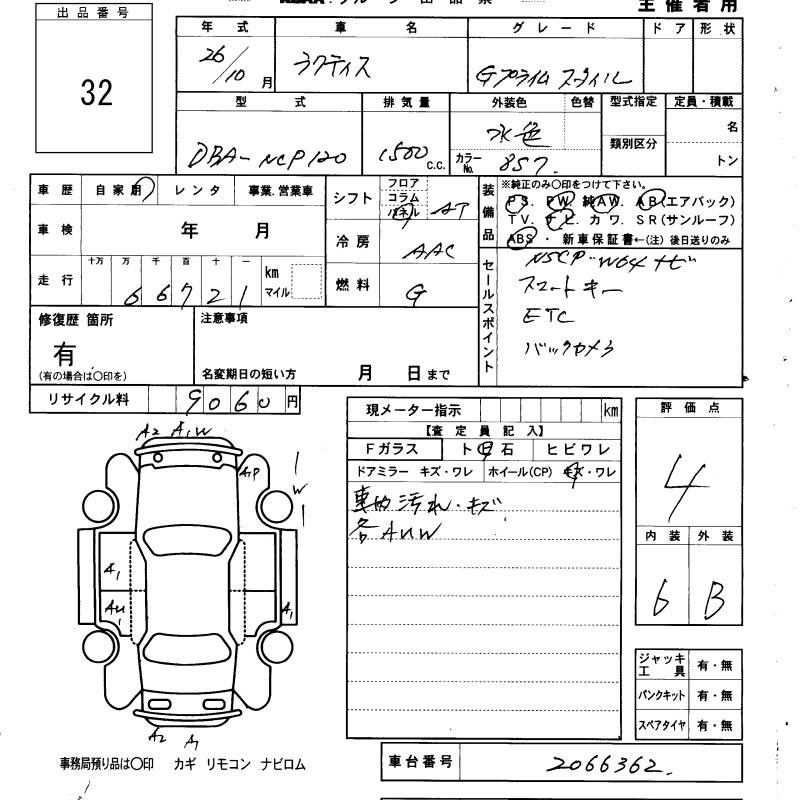 出品番号
32
主催者用
年式 車名 グレード ドア 形状
26/10月 ラクティス Gプライムスタイル
型式 排気量 外装色 色替 型式指定 定員・積載
DBA-NCP120 1500 c.c. 水色 類別区分 名
カラーNo. 857 トン
車歴 自家用 レンタ 事業.営業車
車検 年 月
走行 十万 万 千 百 十 一 km マイル
66721
シフト フロア コラム パネル AT
冷房 AAC
燃料 G
装備品 ※純正のみ〇印をつけて下さい。
PS. PW. 純AW. AB(エアバック)
TV. ナビ. カワ. SR(サンルーフ)
ABS ・ 新車保証書←(注) 後日送りのみ
セールスポイント
NSCP-W64ナビ
スマートキー
ETC
バックカメラ
修復歴 箇所
有
(有の場合は〇印を)
注意事項
名変期日の短い方 月 日まで
リサイクル料 9060円
現メーター指示 km
【査定員記入】
Fガラス ト日石 ヒビワレ
ドアミラー キズ・ワレ ホイール(CP) キズ・ワレ
車内汚れ・キズ
各AUW
評価点
4
内装 外装
6 B
A2 A1W
A1P
W
A1
AU1
A1
A2 A1
ジャッキ工具 有・無
パンクキット 有・無
スペアタイヤ 有・無
事務局預り品は〇印 カギ リモコン ナビロム
車台番号 2066362.